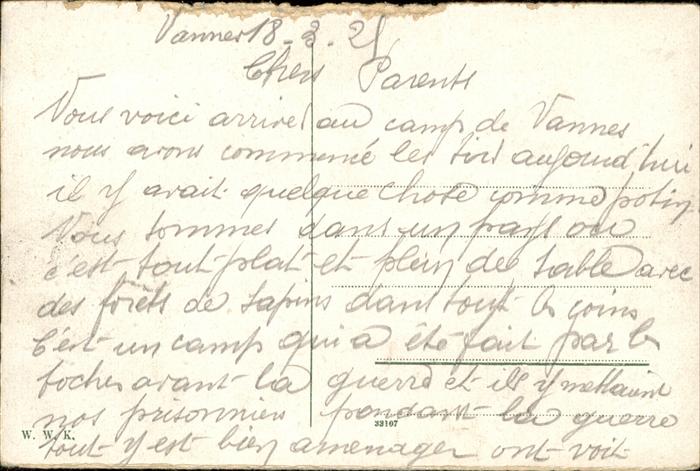 Vannes 18-3.21
Chers Parents
Nous voici arrivés au camp de Vannes
nous avons commencé les tirs aujourd'hui
il y avait quelque chose comme potin
Nous sommes dans un pays ou
c'est tout plat et plein de sable avec
des forêts de sapins dans tout les coins
C'est un camp qui a été fait par les
boches avant la guerre et ils y mettaient
nos prisonniers pendant la guerre
tout y est bien amenager ont voit
W. W. K.
33107